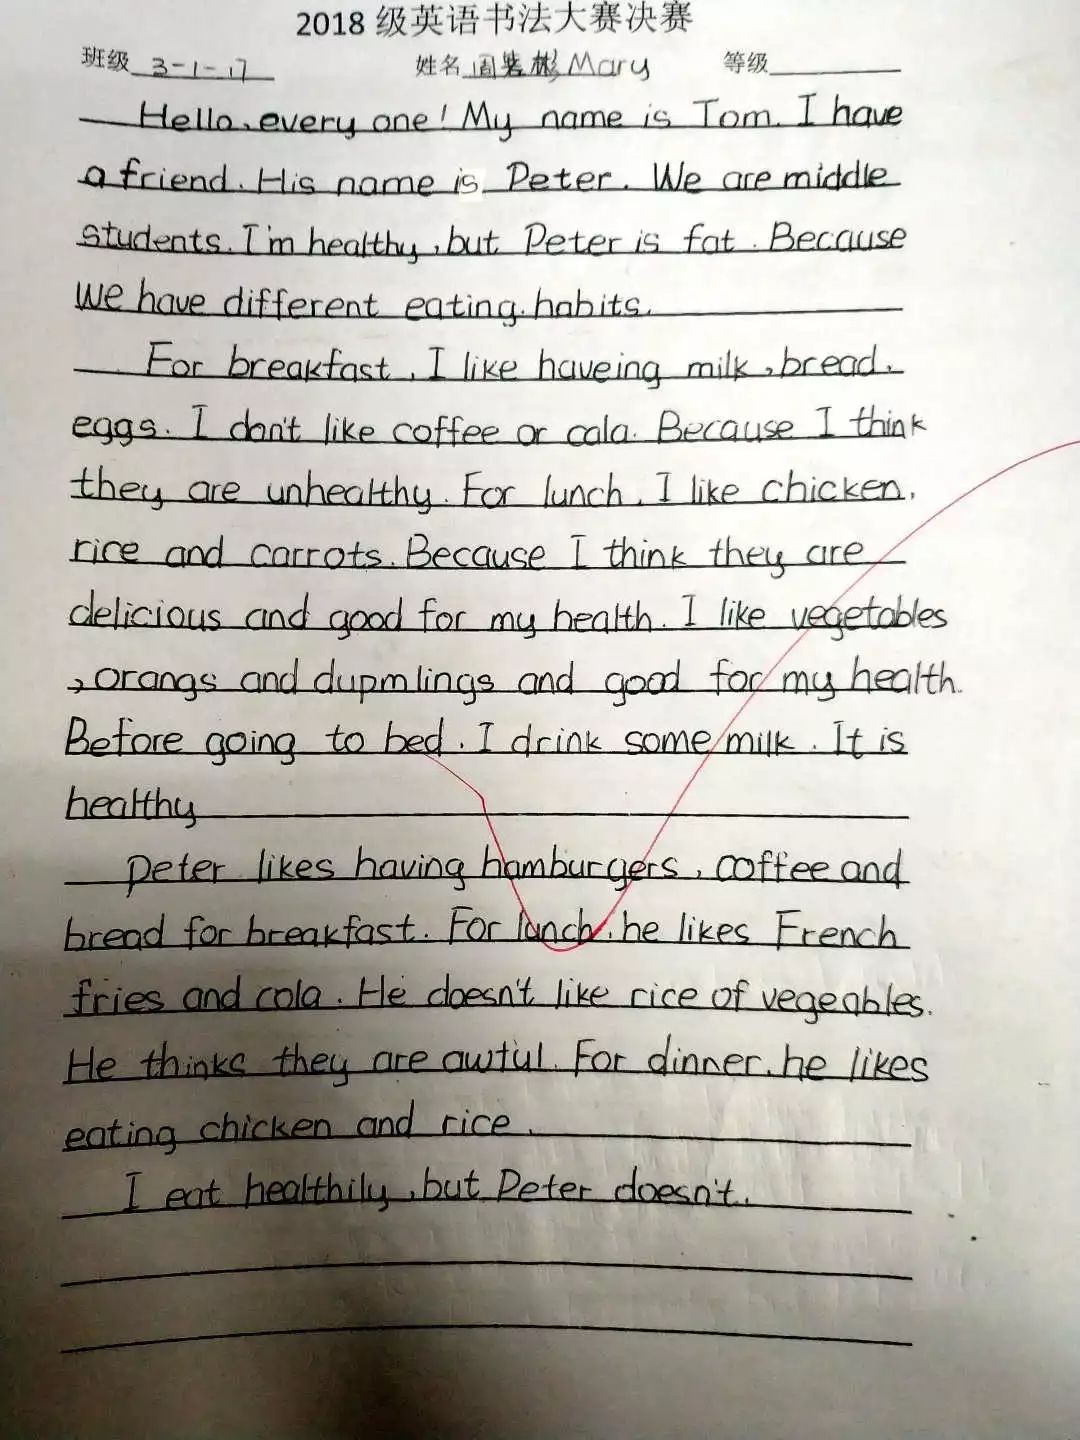 2018 级英语书法大赛决赛
班级 3-1-17 姓名 彬 Mary 等级
Hello, every one! My name is Tom. I have
a friend. His name is Peter. We are middle
students. I'm healthy, but Peter is fat. Because
we have different eating habits.
For breakfast, I like haveing milk, bread,
eggs. I don't like coffee or cola. Because I think
they are unhealthy. For lunch, I like chicken,
rice and carrots. Because I think they are
delicious and good for my health. I like vegetables
, orangs and dupmlings and good for my health.
Before going to bed. I drink some milk. It is
healthy
Peter likes having hamburgers, coffee and
bread for breakfast. For lunch, he likes French
fries and cola. He doesn't like rice of vegeables.
He thinks they are awful. For dinner, he likes
eating chicken and rice.
I eat healthily, but Peter doesn't.